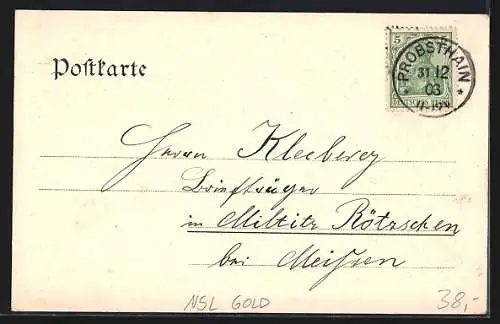 Postkarte
5 5
DEUTSCHES
PROBSTHAIN
31 12
03
Herrn Kleeberg
Briefträger
in Miltitz Rötzschen
bei Meißen
NSL GOLD
38,-